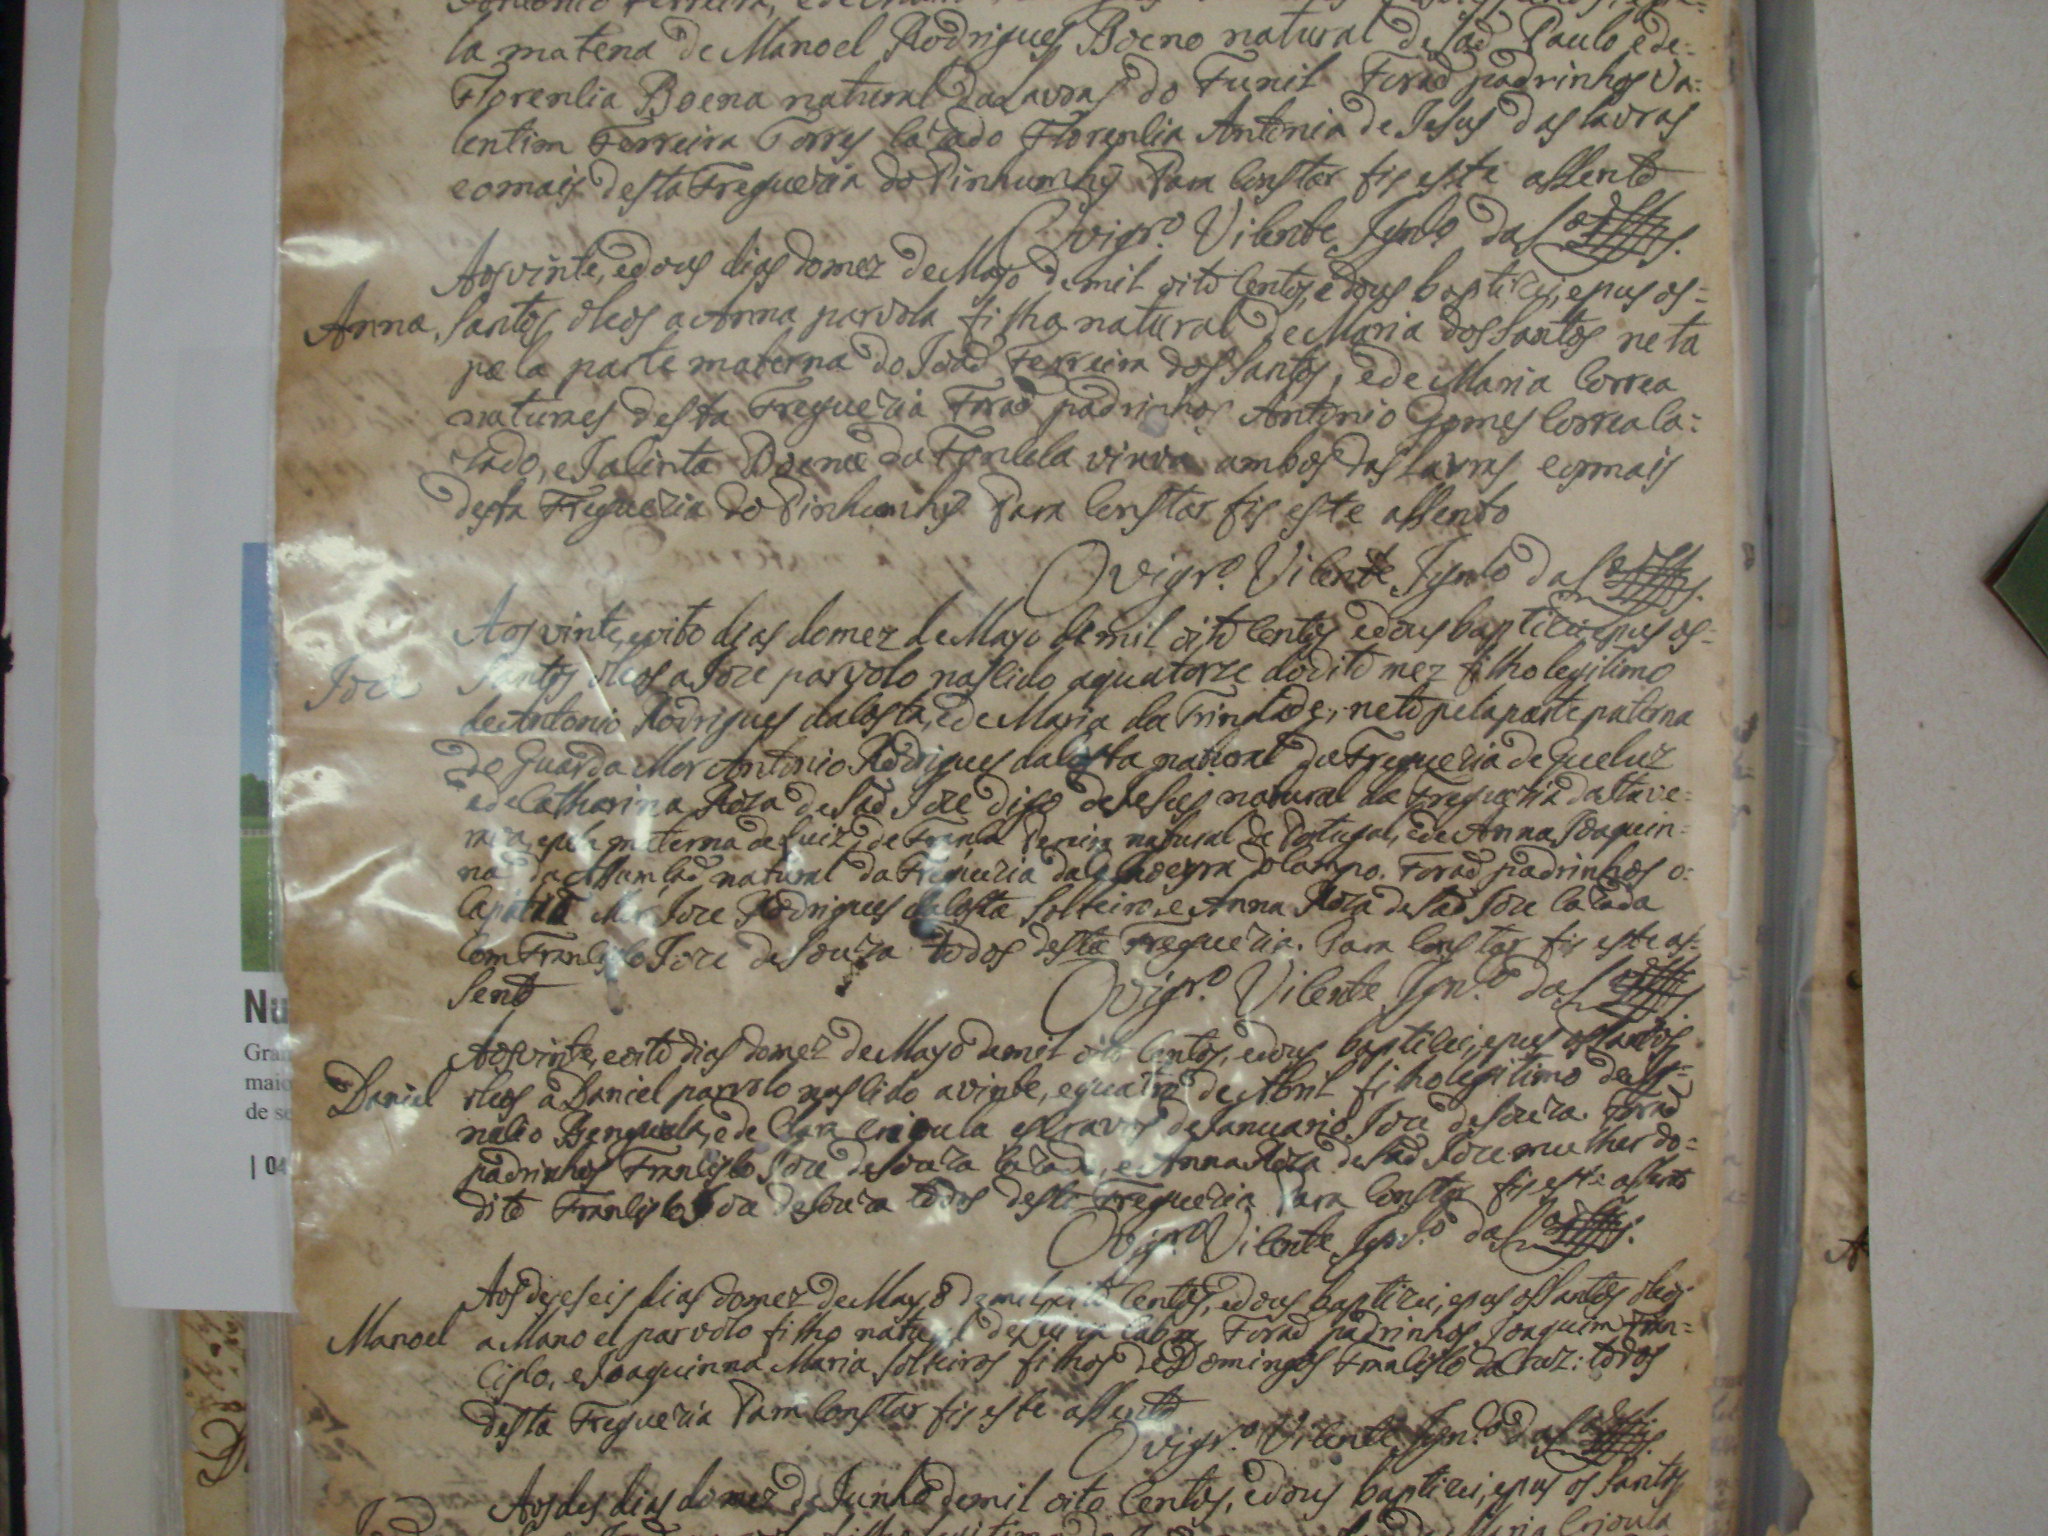 la materna de Manoel Rodrigues Boeno natural de Saõ Paulo, e de=
Florencia Boena natural das Lavras do Funil Foraõ padrinhos Va=
lentim Ferreira Torres cazado Florencia Antonia de Jesus das lavras
e o mais desta Freguezia do Pinhumhÿ Para Constar fis este assento
O vigr.º Vicente Ignº da S
Aos vinte, e dous dias do mez de Mayo de mil oito centos, e dous baptizei, e pus os=
Anna Santos oleos a Anna parvola filha natural de Maria dos Santos neta
pela parte materna do Joaõ Ferreira dos Santos, e de Maria Correa
naturaes desta Freguezia Foraõ padrinhos Antonio Gomes Correa ca=
zado, e Jacinta Boena da viuva ambos das Lavras e o mais
desta Freguezia do Pinhumhÿ Para Constar fis este assento
O vigr.º Vicente Ignco da S
Aos vinte, e oito dias do mez de Mayo de mil oito centos, e dous baptizei e pus os=
Joze Santos oleos a Joze parvolo nascido a quatorze do dito mez filho legitimo
de Antonio Rodrigues da Costa, e de Maria da Trindade, neto pela parte paterna
do Guarda Mor Antonio Rodrigues da Costa natural da Freguezia de Queluz
e de Catharina Roza de Saõ Joze digo de natural da Freguezia da Itave=
rava, e pela materna de Luiz de França natural de Portugal, e de Anna Joaquin=
na da Assumçaõ natural da Freguezia da do Campo. Foraõ padrinhos o=
Capitaõ Mór Joze Rodrigues da Costa Solteiro, e Anna Roza de Saõ Joze cazada
com Francisco Joze de Souza todos desta Freguezia. Para Constar fis este as=
sento
O vigr.º Vicente Ign.º da S
Aos vinte, e oito dias do mez de Mayo de mil oito centos, e dous baptizei, e pus os Santos
Daniel oleos a Daniel parvolo nascido a vinte, e quatro de Abril filho legitimo de Ig=
nacio Benguela, e de Clara crioula escravos de Januario Joze de Souza. Foraõ
padrinhos Francisco Joze de Souza cazado, e Anna Roza de Saõ Joze mulher do=
dito Francisco Joze de Souza todos desta Freguezia Para Constar fis este assento
O vigr.º Vicente Ign.º da S
Aos dezeseis dias do mez de Mayo de mil oito centos, e dous baptizei, e pus os Santos oleos
Manoel a Manoel parvolo filho natural de Foraõ padrinhos Joaquim Fran=
cisco, e Joaquinna Maria Solteiros filhos de Domingos Francisco da Cruz: todos
desta Freguezia Para Constar fis este assento
O vigr.º Vicente Ign.º da S
Aos des dias do mez de Junho de mil oito centos, e dous baptizei, e pus os Santos